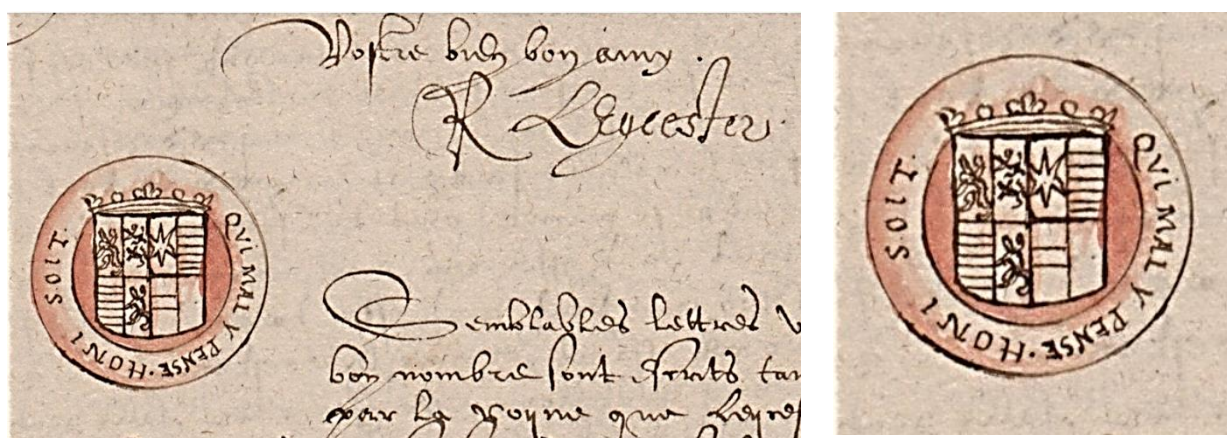 Vostre bien bon amy.
R Leycester
SOIT QVI MAL Y PENSE · HONI
Semblables lettres
bon nombre sont escrits
par la Royne que
SOIT QVI MAL Y PENSE · HONI